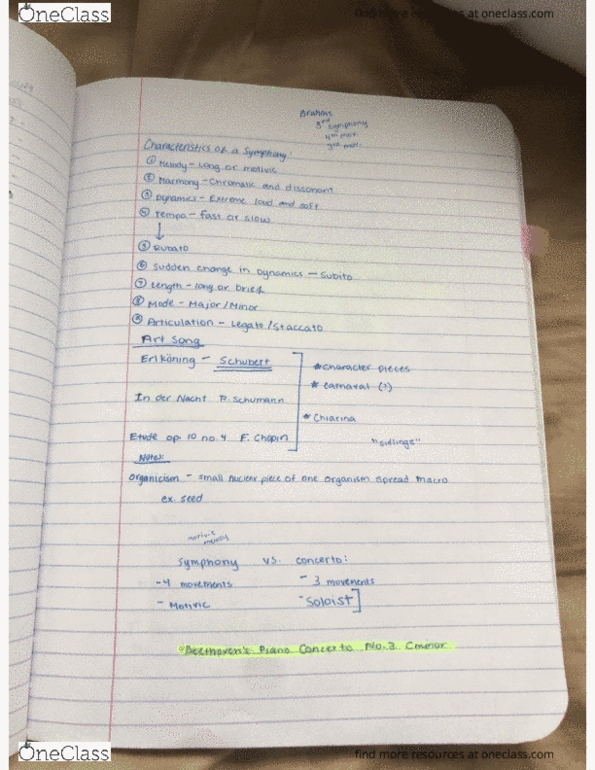 OneClass
find more resources at oneclass.com
Brahms
3rd symphony
4th mov.
3rd mov.
Characteristics of a Symphony:
① Melody - Long or motivic
② Harmony - Chromatic and dissonant
③ Dynamics - Extreme loud and soft
④ Tempo - fast or slow
↓
⑤ Rubato
⑥ Sudden change in Dynamics - Subito
⑦ Length - long or brief
⑧ Mode - Major/Minor
⑨ Articulation - Legato/Staccato
Art Song
Erlköning - Schubert
* character pieces
* carnaval (?)
In der Nacht R. Schumann
* Chiarina
Etude op 10 no. 4 F. Chopin
Notes:
organicism - small nuclear piece of one organism spread macro
ex. seed
symphony vs. concerto:
-4 movements - 3 movements
- Motivic - Soloist
Beethoven's Piano Concerto No. 3 Cminor
OneClass
find more resources at oneclass.com